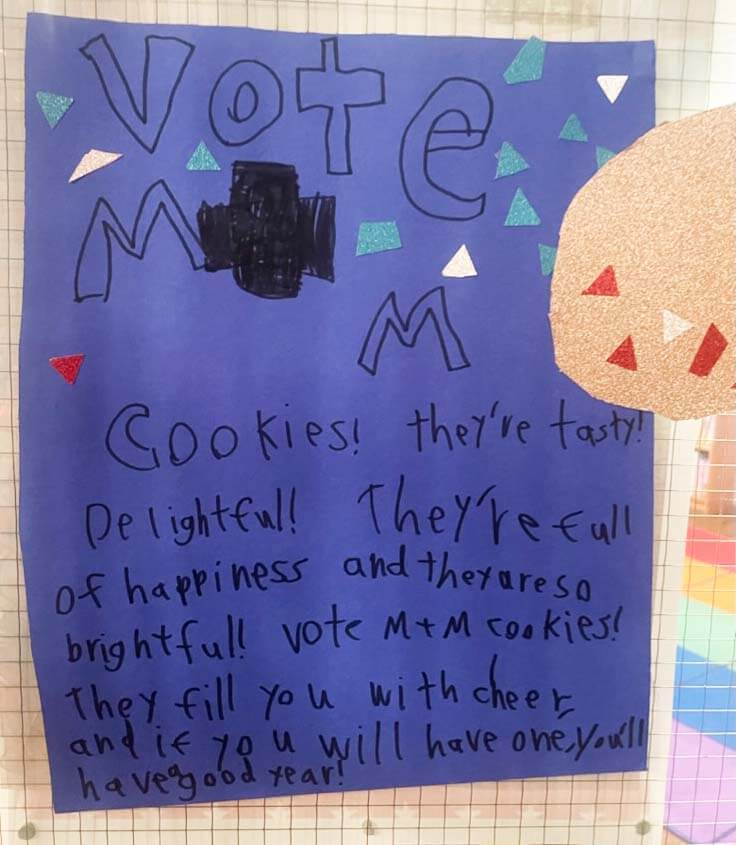 Vote
M + M
Cookies! they're tasty!
Delightful! They're full
of happiness and they are so
brightful! Vote M+M cookies!
They fill you with cheer,
and if you will have one, you'll
have a good year!